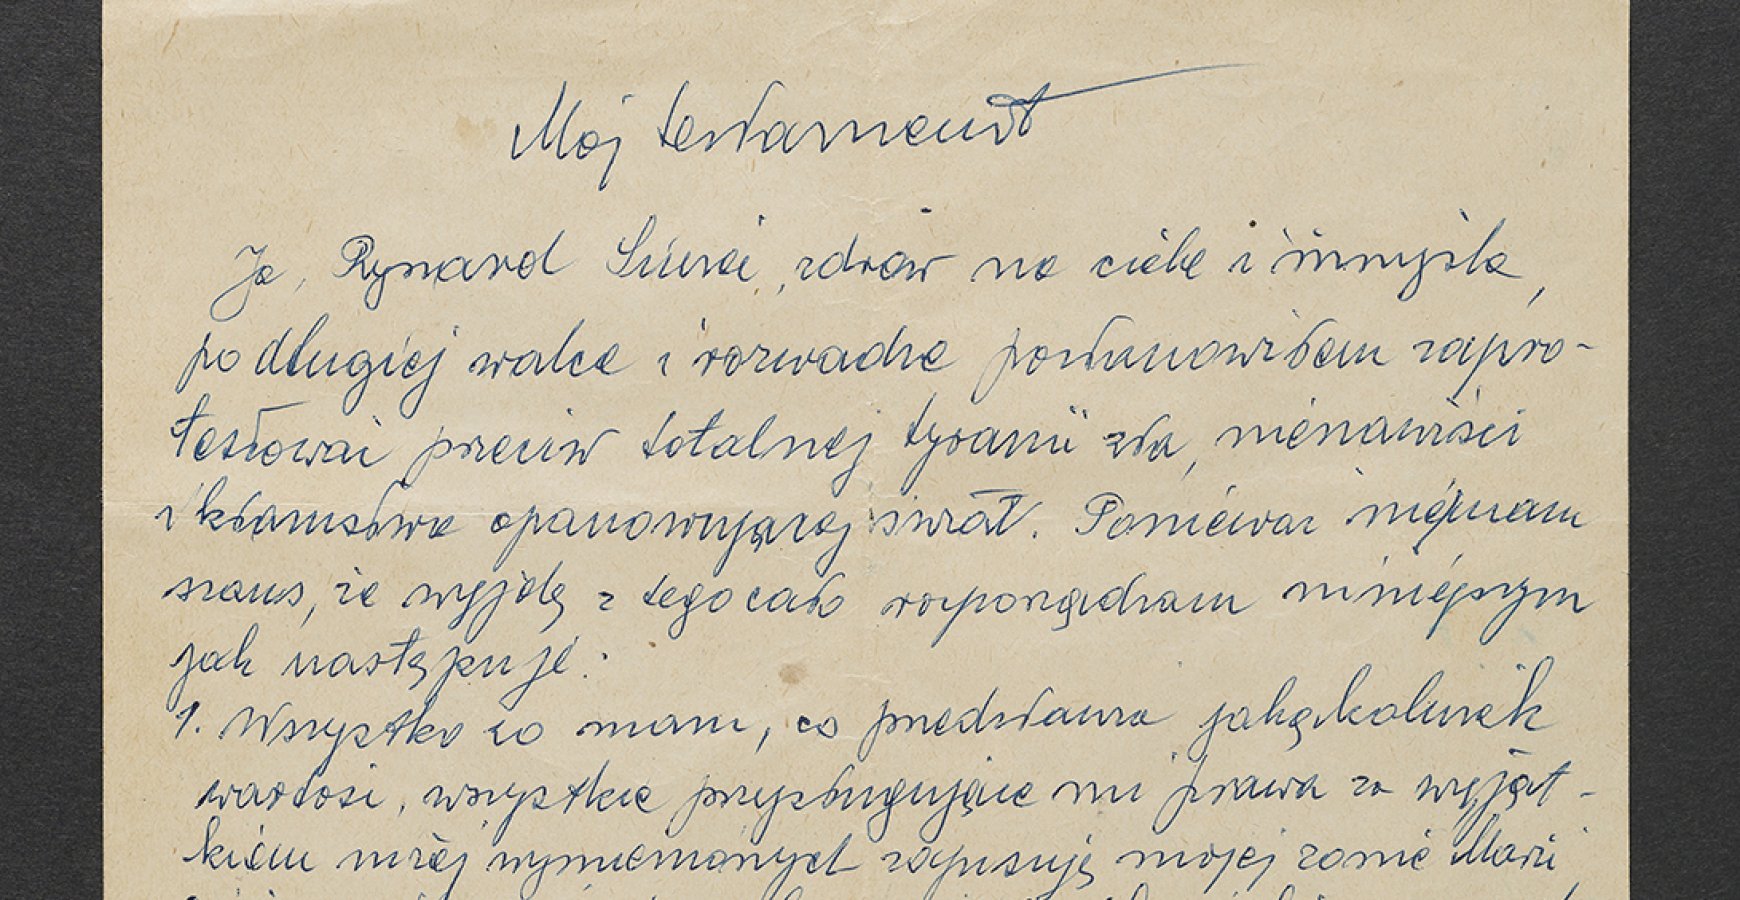 Mój testament
Ja, Ryszard Siwiec, zdrów na ciele i umyśle,
po długiej walce i rozwadze postanowiłem zapro-
testować przeciw totalnej tyranii zła, nienawiści
i kłamstwa opanowującej świat. Ponieważ nie mam
szans, że wyjdę z tego cało rozporządzam niniejszym
jak następuje:
1. Wszystko co mam, co przedstawia jakąkolwiek
wartość, wszystkie przysługujące mi prawa za wyjąt-
kiem niżej wymienionych zapisuję mojej żonie Marii